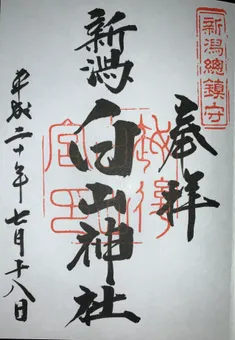 新潟總鎮守
奉拝
新潟
白山神社
平成二十年七月十八日